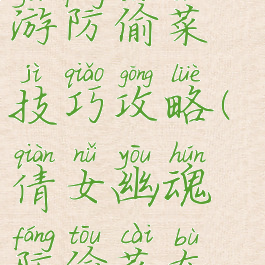 游防偷菜
jì qiǎo gōng lüè
技巧攻略(
qiàn nǚ yōu hún
倩女幽魂
fáng tōu cài bù
防偷菜